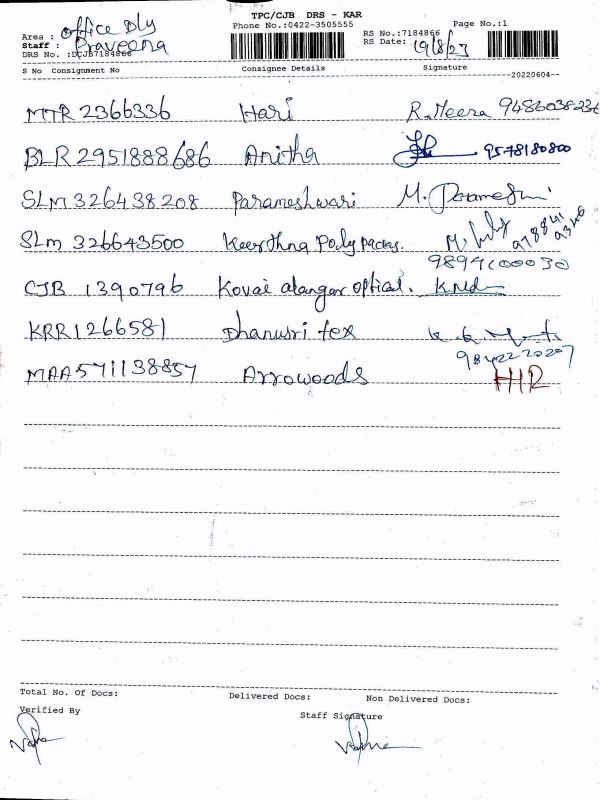 TPC/CJB DRS - KAR
Phone No.:0422-3505555
Page No.:1
Area : office Dly
Staff : Praveena
DRS No. :DCJB7184866
RS No.:7184866
RS Date: 19/8/23
S No Consignment No Consignee Details Signature
--20220604--
MTR 2366336 Hari R.Meera 9486038236
BLR 2951888686 Anitha 9578180800
SLM 326438208 Parameshwari M.
SLM 326643500 Keerthna Poly packs.
9894100030
CJB 1390796 Kovai alangar optical.
KRR 1266581 Dhanusri tex
9842220207
MAA 571138857 Arrowoods HR
Total No. Of Docs: Delivered Docs: Non Delivered Docs:
Verified By
Staff Signature